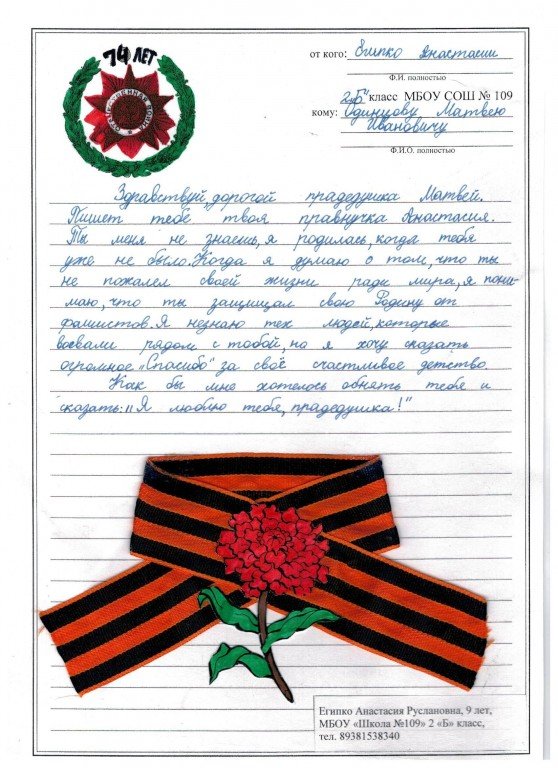 74 ЛЕТ
ОТЕЧЕСТВЕННАЯ ВОЙНА
от кого: Египко Анастасии
Ф.И. полностью
2 „Б" класс МБОУ СОШ № 109
кому: Одинцову Матвею
Ивановичу
Ф.И.О. полностью
Здравствуй, дорогой прадедушка Матвей.
Пишет тебе твоя правнучка Анастасия.
Ты меня не знаешь, я родилась, когда тебя
уже не было. Когда я думаю о том, что ты
не пожалел своей жизни ради мира, я пони-
маю, что ты защищал свою Родину от
фашистов. Я незнаю тех людей, которые
воевали рядом с тобой, но я хочу сказать
огромное „Спасибо" за своё счастливое детство.
Как бы мне хотелось обнять тебя и
сказать: „Я люблю тебя, прадедушка!"
Египко Анастасия Руслановна, 9 лет,
МБОУ «Школа №109» 2 «Б» класс,
тел. 89381538340